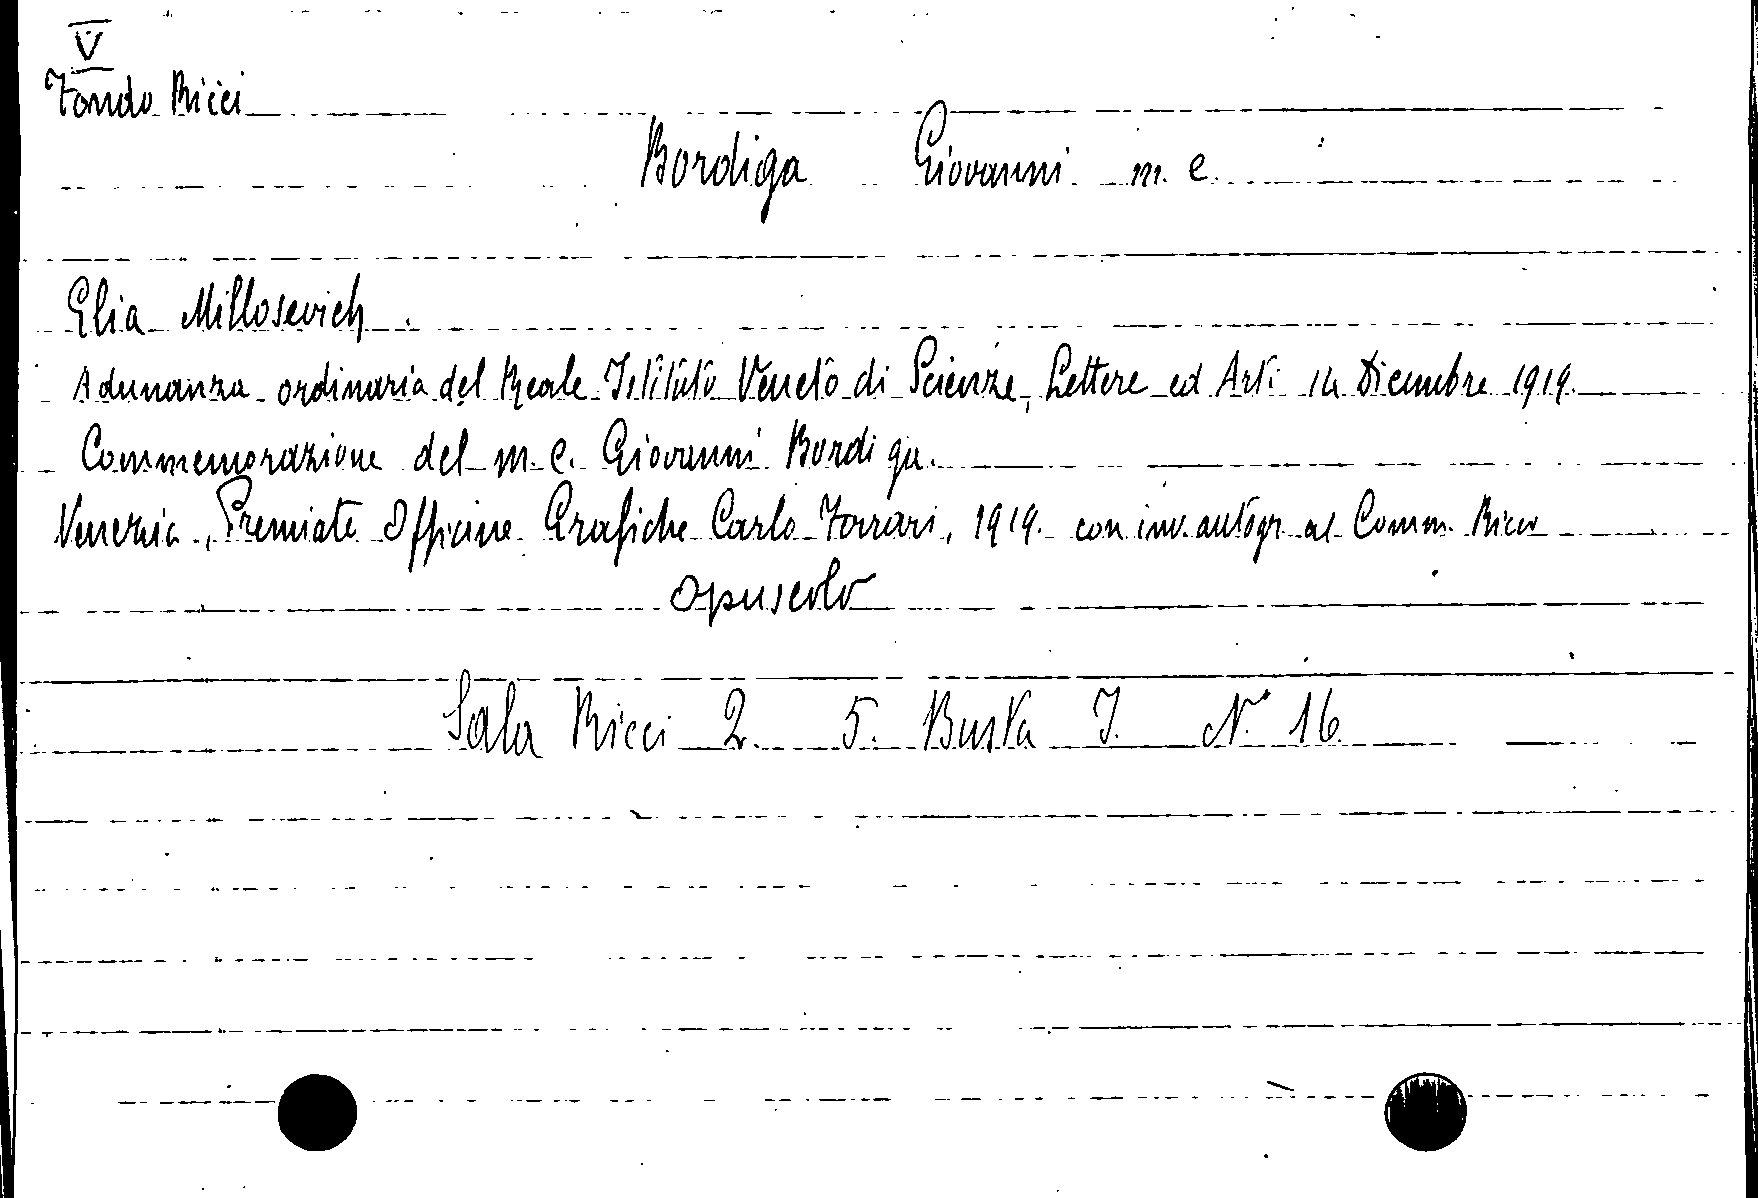 V
Fondo Ricci
Bordiga Giovanni m. e.
Elia Millosevich.
Adunanza ordinaria del Reale Istituto Veneto di Scienze, Lettere ed Arti 14 Dicembre 1919.
Commemorazione del m. e. Giovanni Bordiga.
Venezia, Premiate Officine Grafiche Carlo Ferrari, 1919. con inv. autogr. al Comm. Ricci
opuscolo
Sala Ricci 2. 5. Busta I. N. 16